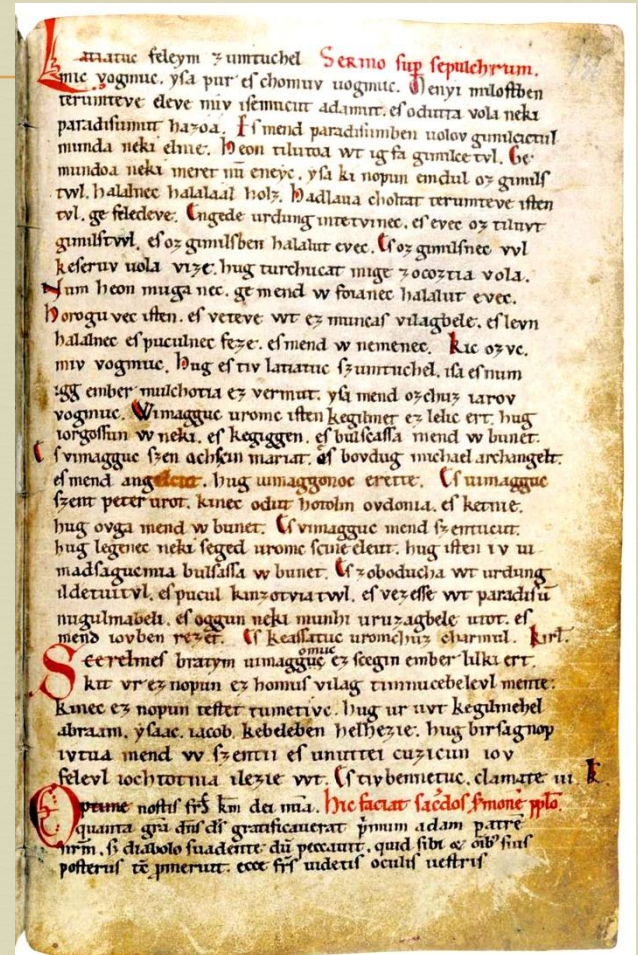 Latiatuc feleym zumtuchel Sermo sup sepulchrum.
mic vogmuc. ysa pur es chomuv uogmuc. Menyi milostben
terumteve eleve miv isemucut adamut. es odutta vola neki
paradisumut hazoa. Es mend paradisumben uolov gimilcictul
munda neki elnie. Heon tilutoa wt ig fa gimilce tvl. Ge
mundoa neki meret nũ eneyc. ysa ki nopun emdul oz gimils
twl. halalnec halalaal holz. Hadlaua choltat terumteve isten
tvl. ge feledeve. Engede urdung intetvinec. es evec oz tiluvt
gimilstwl. es oz gimilsben halalut evec. Es oz gimilsnec vvl
keseruv uola vize. hug turchucat mige zocoztia vola.
Num heon muga nec. ge mend w foianec halalut evec.
Horogu vec isten. es veteve wt ez muncas vilagbele. es levn
halalnec es puculnec feze. es mend w nemenec. Kic ozvc.
miv vogmuc. Hug es tiv latiatuc szumtuchel. isa es num
igg ember mulchotia ez vermut. ysa mend ozchuz iarov
vogmuc. Wimagguc uromc isten kegilmet ez lelic ert. hug
iorgossun w neki. es kegiggen. es bulscassa mend w bunet.
Es vimagguc szen achscin mariat. es bovdug michael archangelt.
es mend angelcut. hug uimaggonoc erette. Es uimagguc
szent peter urot. kinec odut hotolm ovdonia. es ketnie.
hug ovga mend w bunet. Es vimagguc mend szentucut.
hug legenec neki seged uromc scine eleut. hug isten iv ui
madsaguc mia bulsassa w bunet. Es zoboducha wt urdung
ildetuitvl. es pucul kinzotviatwl. es vezesse wt paradisũ
nugulmabeli. es oggun neki munhi uruzagbele utot. es
mend iovben rezet. Es keassatuc uromchuz charmul. kirl.
omuc
Scerelmes bratym uimagguc ez scegin ember lilki ert.
kit vr ez nopun ez homus vilag timnucebelevl mente.
kinec ez nopun testet tumetivc. hug ur uvt kegilmehel
abraam. ysaac. iacob. kebeleben helhezie. hug birsagnop
ivtua mend w szentii es unuttei cuzicun iov
felevl iochtotnia ilezie wt. Es tiv bennetuc. clamate iii. k.
Optime nostis frs km dei mia. hic faciat sacdos smone pplo.
quanta gra dns ds gratificauerat primum adam patre
nrm. si diabolo suadente du peccauit. quid sibi et oib suis
posteris te pmeruit. ecce frs uidetis oculis uestris